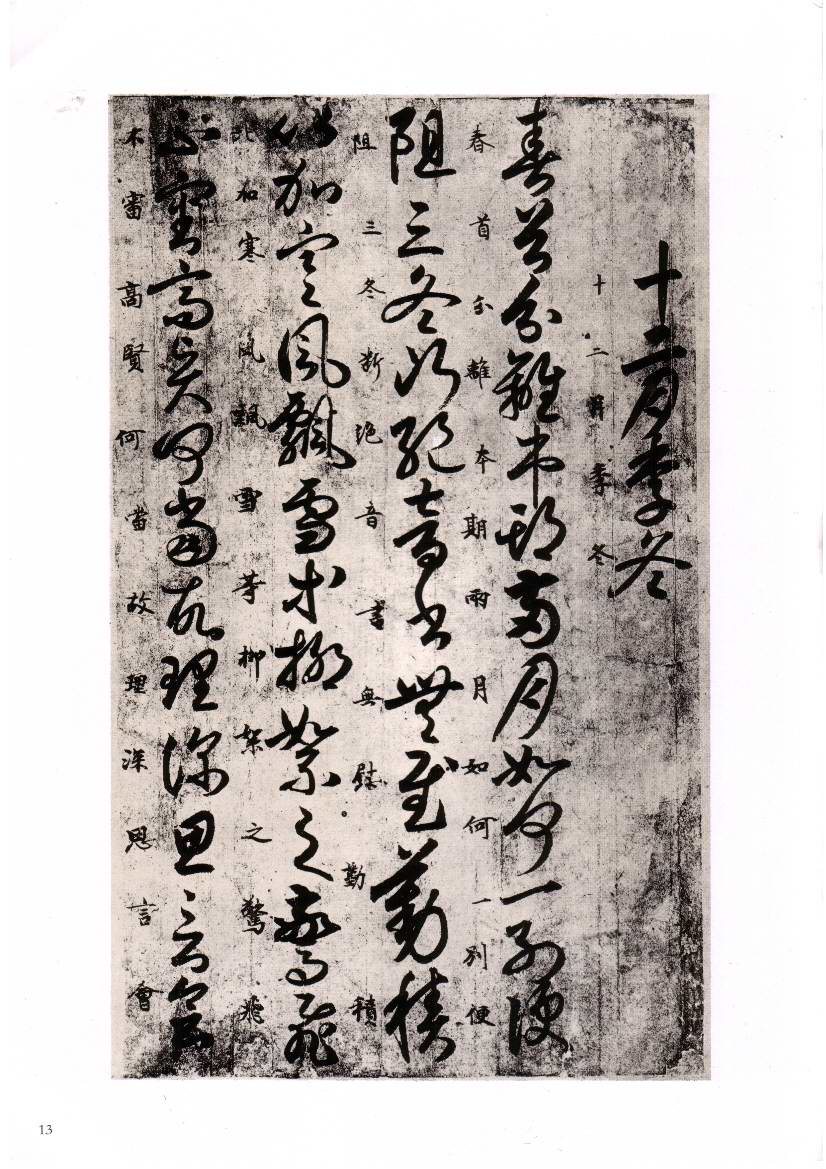 十二月季冬
十二月季冬
春首分離本期兩月如何一別便
春首分離本期兩月如何一別便
阻三冬斷絶音書無慰勤積
阻三冬斷絶音書無慰勤積
比加寒風飄雪等柳絮之驚飛
比加寒風飄雪等柳絮之驚飛
不審高賢何當故理深思言會
不審高賢何當故理深思言會
13